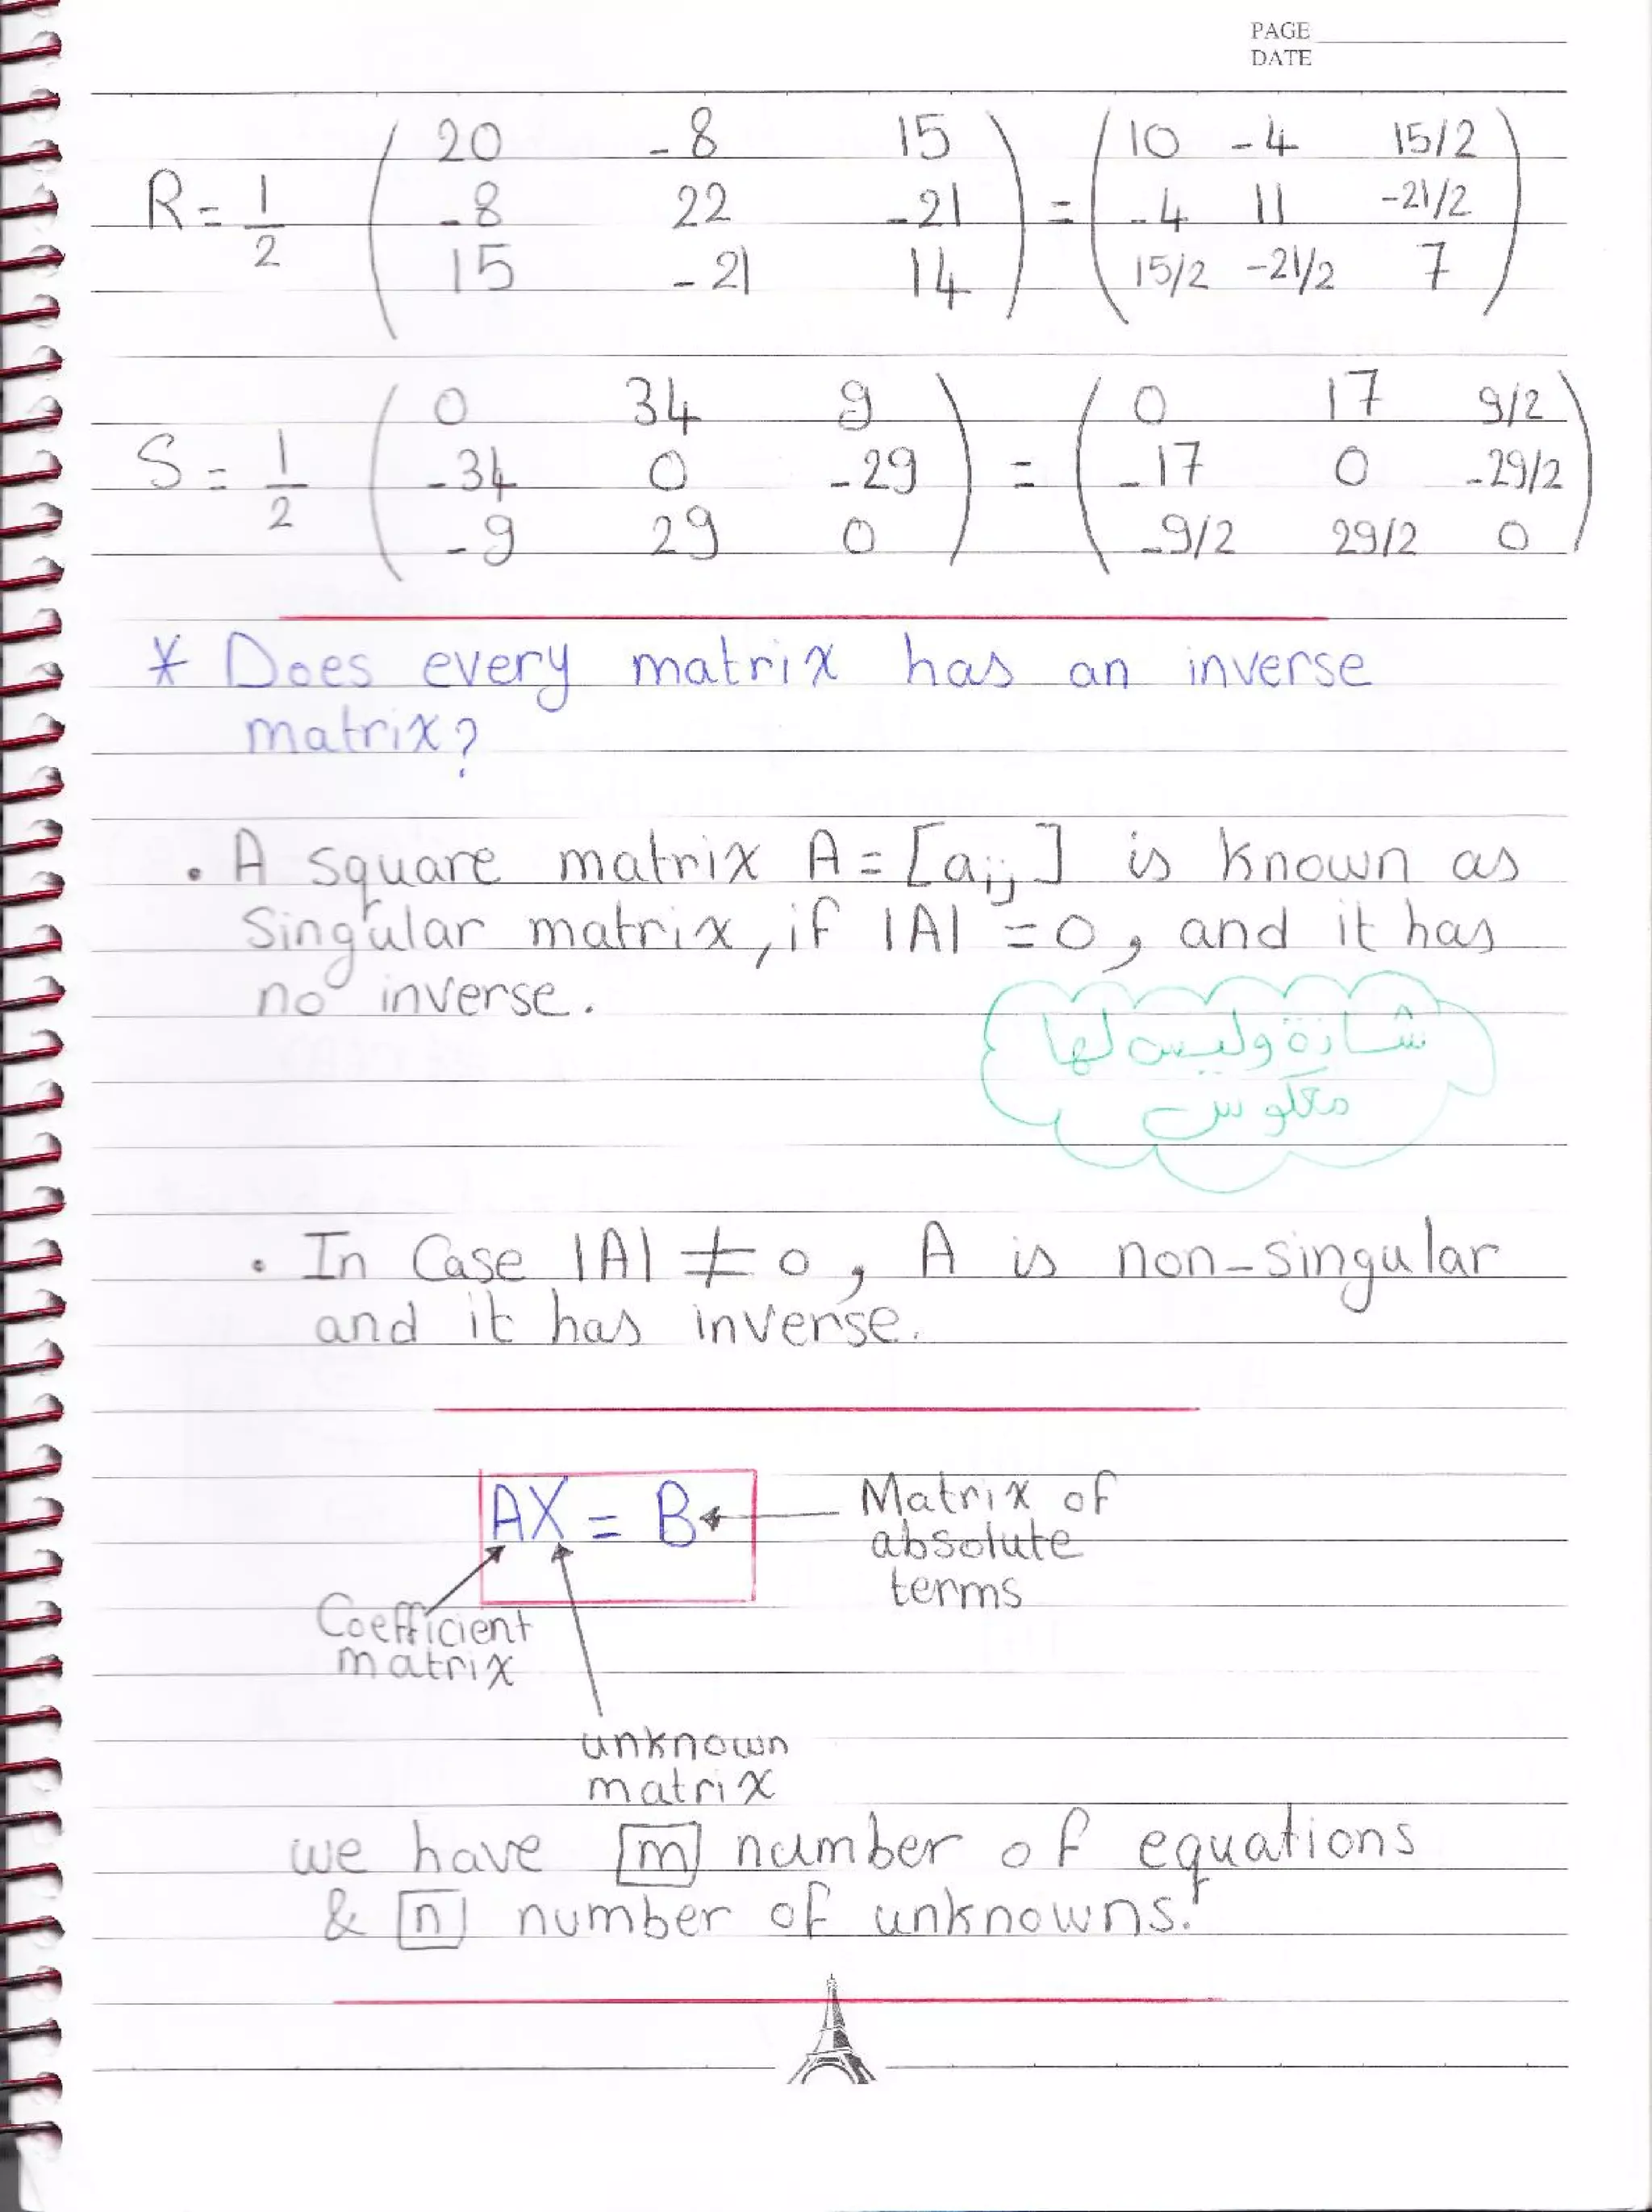 PAGE
DATE
R = 1/2 ( 20 -8 15 ) = ( 10 -4 15/2 )
( -8 22 -21 ) ( -4 11 -21/2 )
( 15 -21 14 ) ( 15/2 -21/2 7 )
S = 1/2 ( 0 34 9 ) = ( 0 17 9/2 )
( -34 0 -29 ) ( -17 0 -29/2 )
( -9 29 0 ) ( -9/2 29/2 0 )
* Does every matrix has an inverse
matrix?
• A square matrix A = [aij] is known as
Singular matrix, if |A| = 0, and it has
no inverse.
شاذة وليس لها
معكوس
• In Case |A| ≠ 0, A is non-singular
and it has inverse.
AX = B
Matrix of
absolute
terms
Coefficient
matrix
unknown
matrix
we have m number of equations
& n number of unknowns.